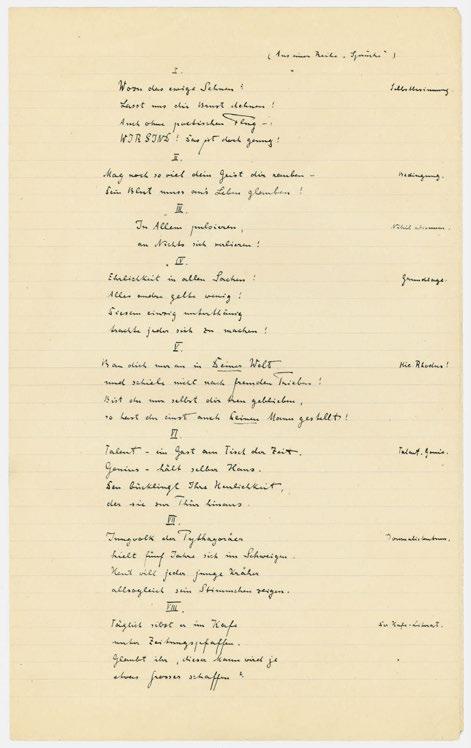 (Aus einer Reihe „Sprüche“)
I.
Wozu das ewige Sehnen? Selbstbesinnung
Lasst uns die Brust dehnen!
Auch ohne poetischen Flug –:
WIR SIND! Das ist doch genug!
II.
Mag noch so viel dein Geist dir rauben – Bedingung.
Dein Blut muss an's Leben glauben!
III.
In Allem pulsieren, Nihil
an Nichts sich verlieren!
IV.
Ehrlichkeit in allen Sachen! Grundlage.
Alles andre gelte wenig!
Diesem einzig unterthänig
trachte jeder sich zu machen!
V.
Bau dich nur an in Deiner Welt Hic Rhodus!
und schiele nicht nach fremden Trieben!
Bist du nur selbst dir treu geblieben,
so hast du einst auch Deinen Mann gestellt!
VI.
Talent – ein Gast am Tisch der Zeit. Talent. Genie.
Genius – hält selber Haus.
Den bücklingt Ihre Herrlichkeit,
der sie zur Thür hinaus.
VII.
Jungvolk der Pythagoräer Journalistentum.
hielt fünf Jahre sich im Schweigen.
Heut will jeder junge Kräher
allsogleich sein Stimmchen zeigen.
VIII.
Täglich sitzt er im Kafe Der Kafe-Literat.
unter Zeitungspfaffen.
Glaubt ihr, „dieser Mann wird je
etwas Grosses schaffen“?